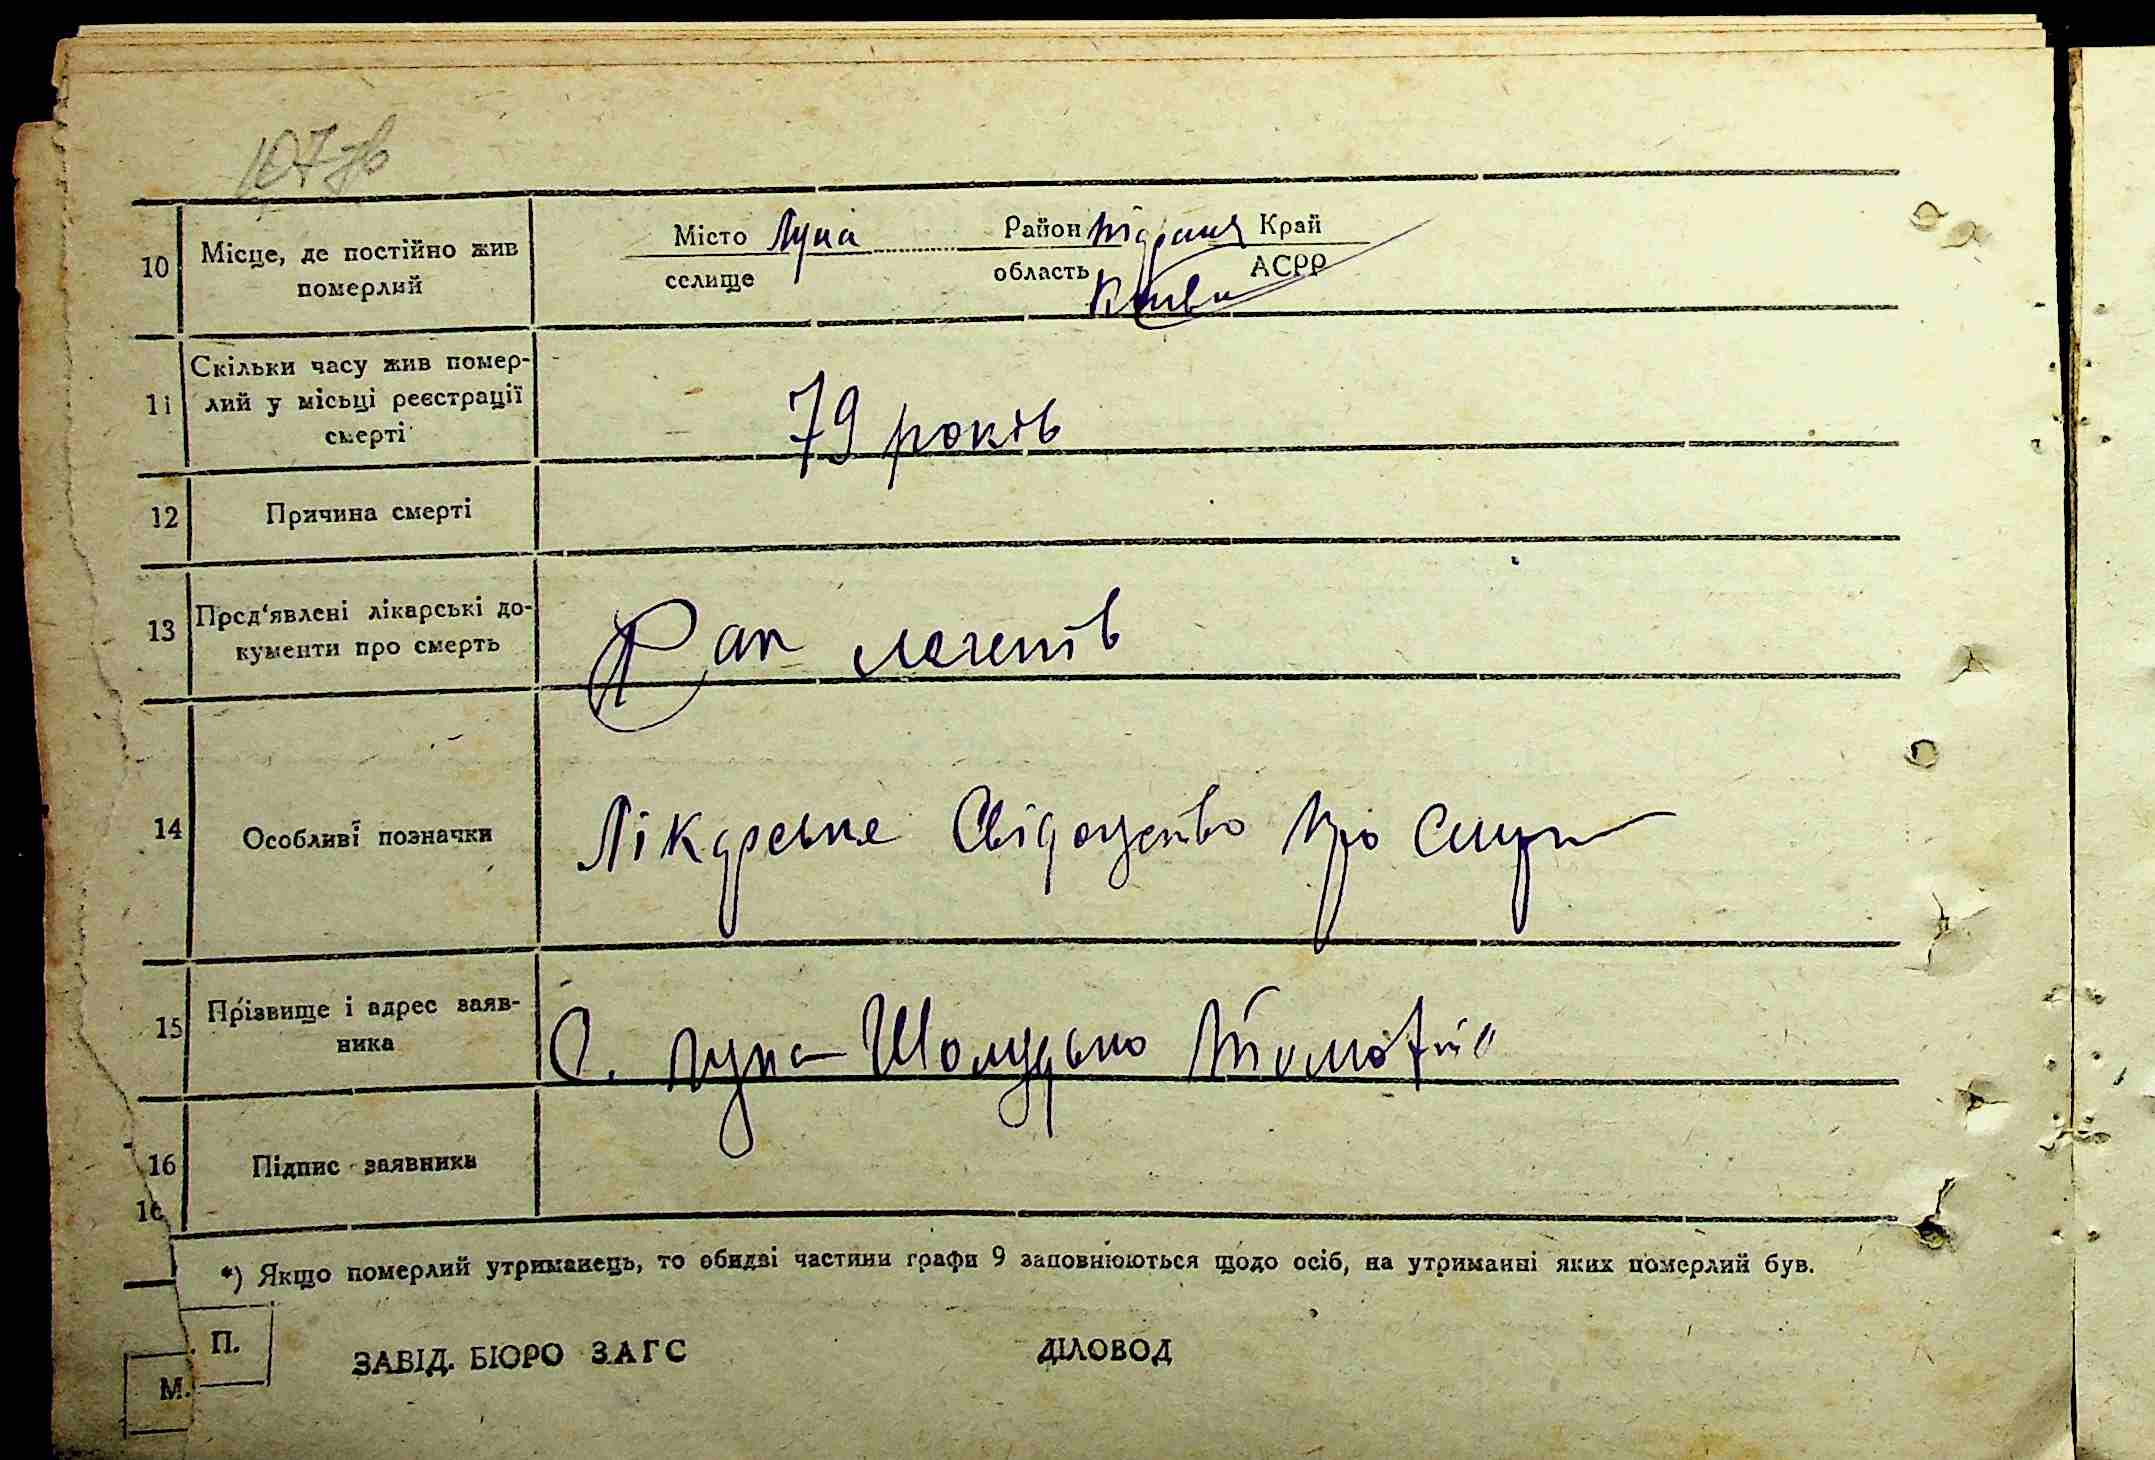 107 зв
10 Місце, де постійно жив померлий
Місто Лука Район Тідраша Край
селище область Київ АСРР
11 Скільки часу жив помер-
лий у місьці реєстрації
смерті
79 років
12 Причина смерті
13 Пред'явлені лікарські до-
кументи про смерть
Рак легенів
14 Особливі позначки
Лікарське Свідоцтво про Смерть
15 Прізвище і адрес заяв-
ника
С. Лука Шолудько Тимофій
16 Підпис заявника
16
*) Якщо померлий утриманець, то обидві частини графи 9 заповнюються щодо осіб, на утриманні яких померлий був.
М. П.
ЗАВІД. БЮРО ЗАГС ДІЛОВОД